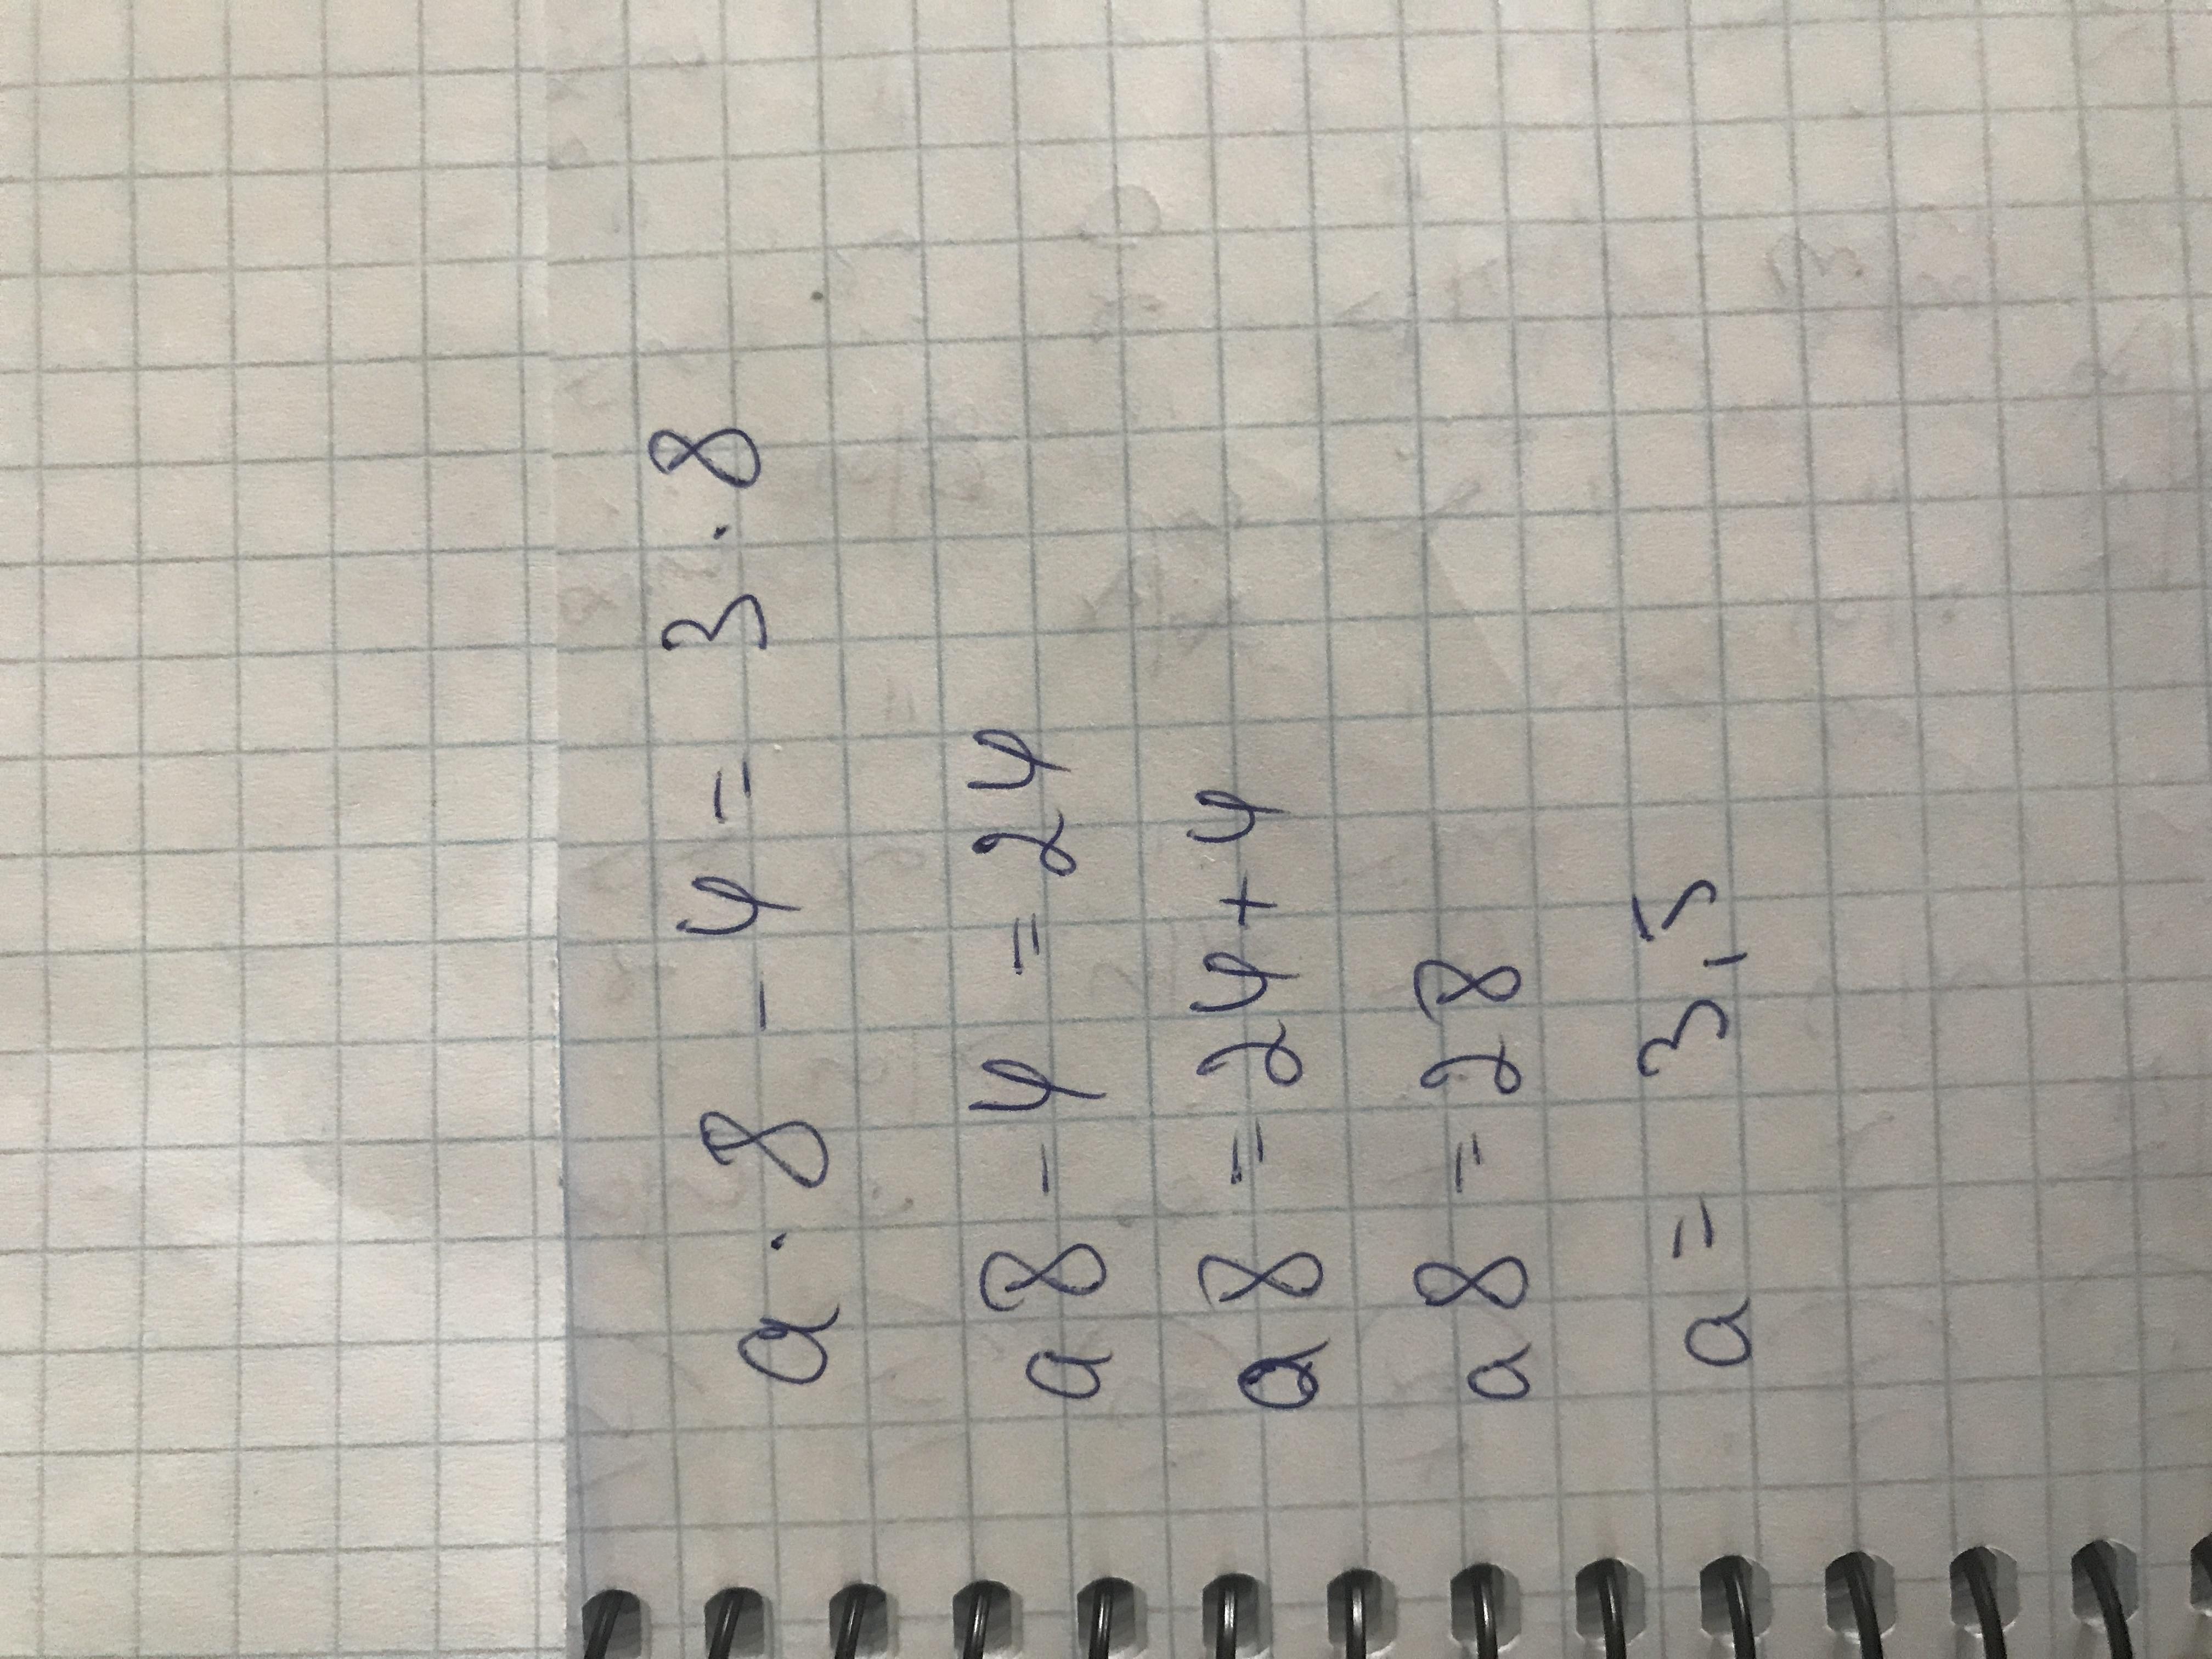 a · 8 - 4 = 3 · 8
a8 - 4 = 24
a8 = 24 + 4
a8 = 28
a = 3,5